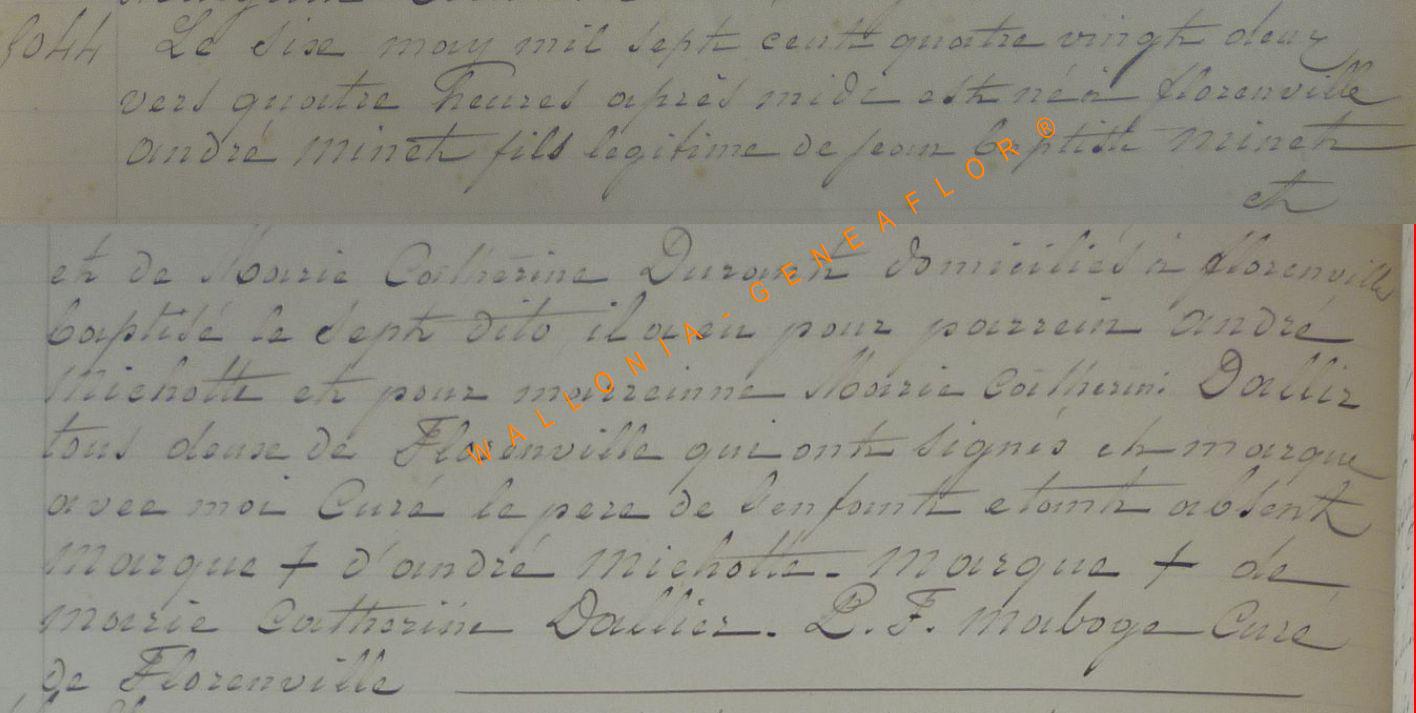 3044 Le six may mil sept cent quatre vingt deux
vers quatre heures après midi est né à florenville
andré minet fils legitime de jean baptiste minet
et
et de Marie Catherine Durant domiciliés à florenville
baptisé le sept dito il a eu pour parrein andré
Michotte et pour marreinne Marie Catherine Dallier
tous deux de Florenville qui ont signés et marque
avec moi Curé le pere de l'enfant etant absent
Marque + d'andré Michotte. Marque + de
marie Catherine Dallier. P. F. maboge Curé
de Florenville
WALLONIA - GENEAFLOR ®